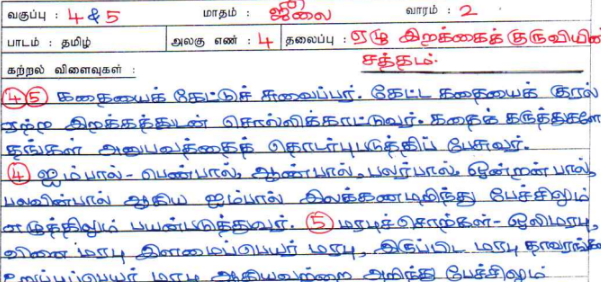 வகுப்பு : 4 & 5 மாதம் : ஜீலை வாரம் : 2
பாடம் : தமிழ் அலகு எண் : 4 தலைப்பு : ஏழு இறக்கைக் குருவியின்
சத்தம்.
கற்றல் விளைவுகள் :
④⑤ கதையைக் கேட்டுச் சுவைப்பர். கேட்ட கதையைக் குரல்
ஏற்ற இறக்கத்துடன் சொல்லிக்காட்டுவர். கதைக் கருத்துகளை
தங்கள் அனுபவத்தைத் தொடர்புபடுத்திப் பேசுவர்.
④ ஐம்பால் - பெண்பால், ஆண்பால், பலர்பால், ஒன்றன்பால்,
பலவின்பால் ஆகிய ஐம்பால் இலக்கணமறிந்து பேச்சிலும்
எழுத்திலும் பயன்படுத்துவர். ⑤ மரபுச்சொற்கள் - ஒலிமரபு,
வினை மரபு இளமைப்பெயர் மரபு, இருப்பிட மரபு தாவரங்க
உறுப்புப்பெயர் மரபு ஆகியவற்றை அறிந்து பேச்சிலும்